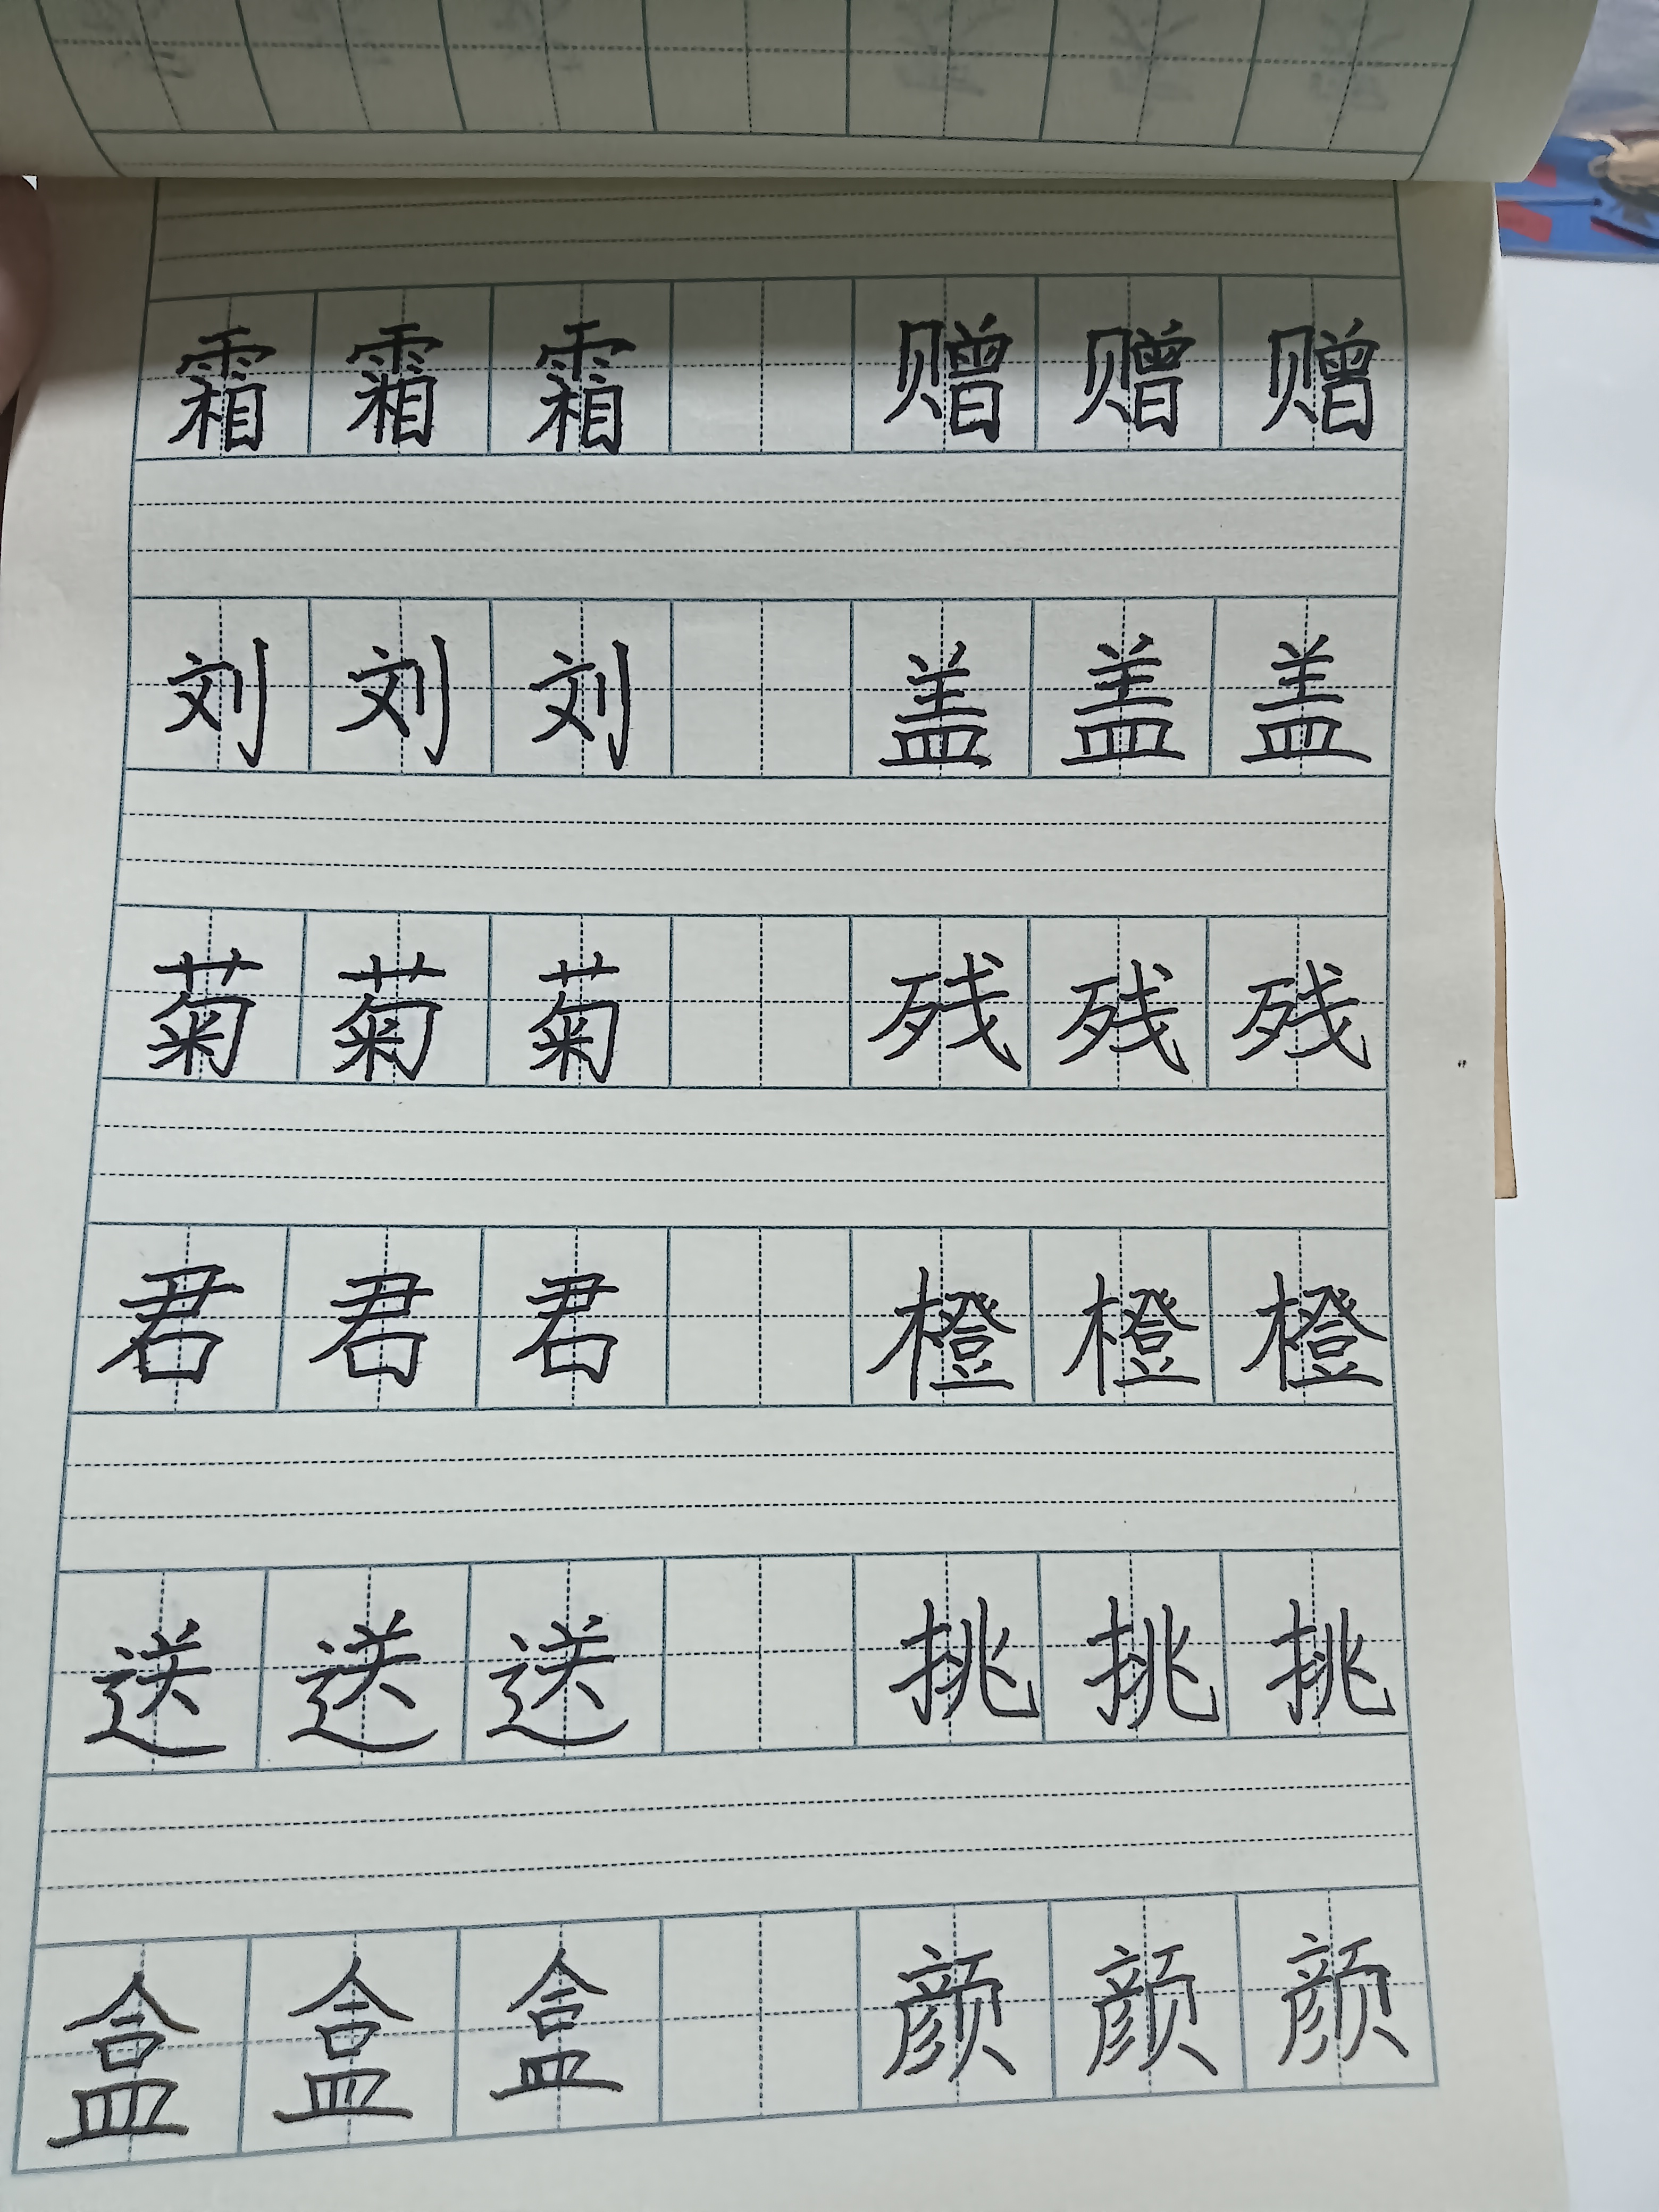 霜霜霜 赠赠赠
刘刘刘 盖盖盖
菊菊菊 残残残
君君君 橙橙橙
送送送 挑挑挑
盒盒盒 颜颜颜